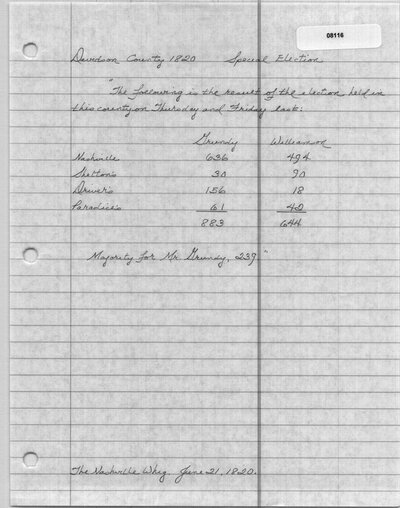 08116
Davidson County 1820 Special Election
"The following is the result of the election held in
this county on Thursday and Friday last:
Grundy Williamson
Nashville 636 494
Shelton's 30 90
Driver's 156 18
Paradice's 61 42
883 644
Majority for Mr. Grundy, 239."
The Nashville Whig. June 21, 1820.